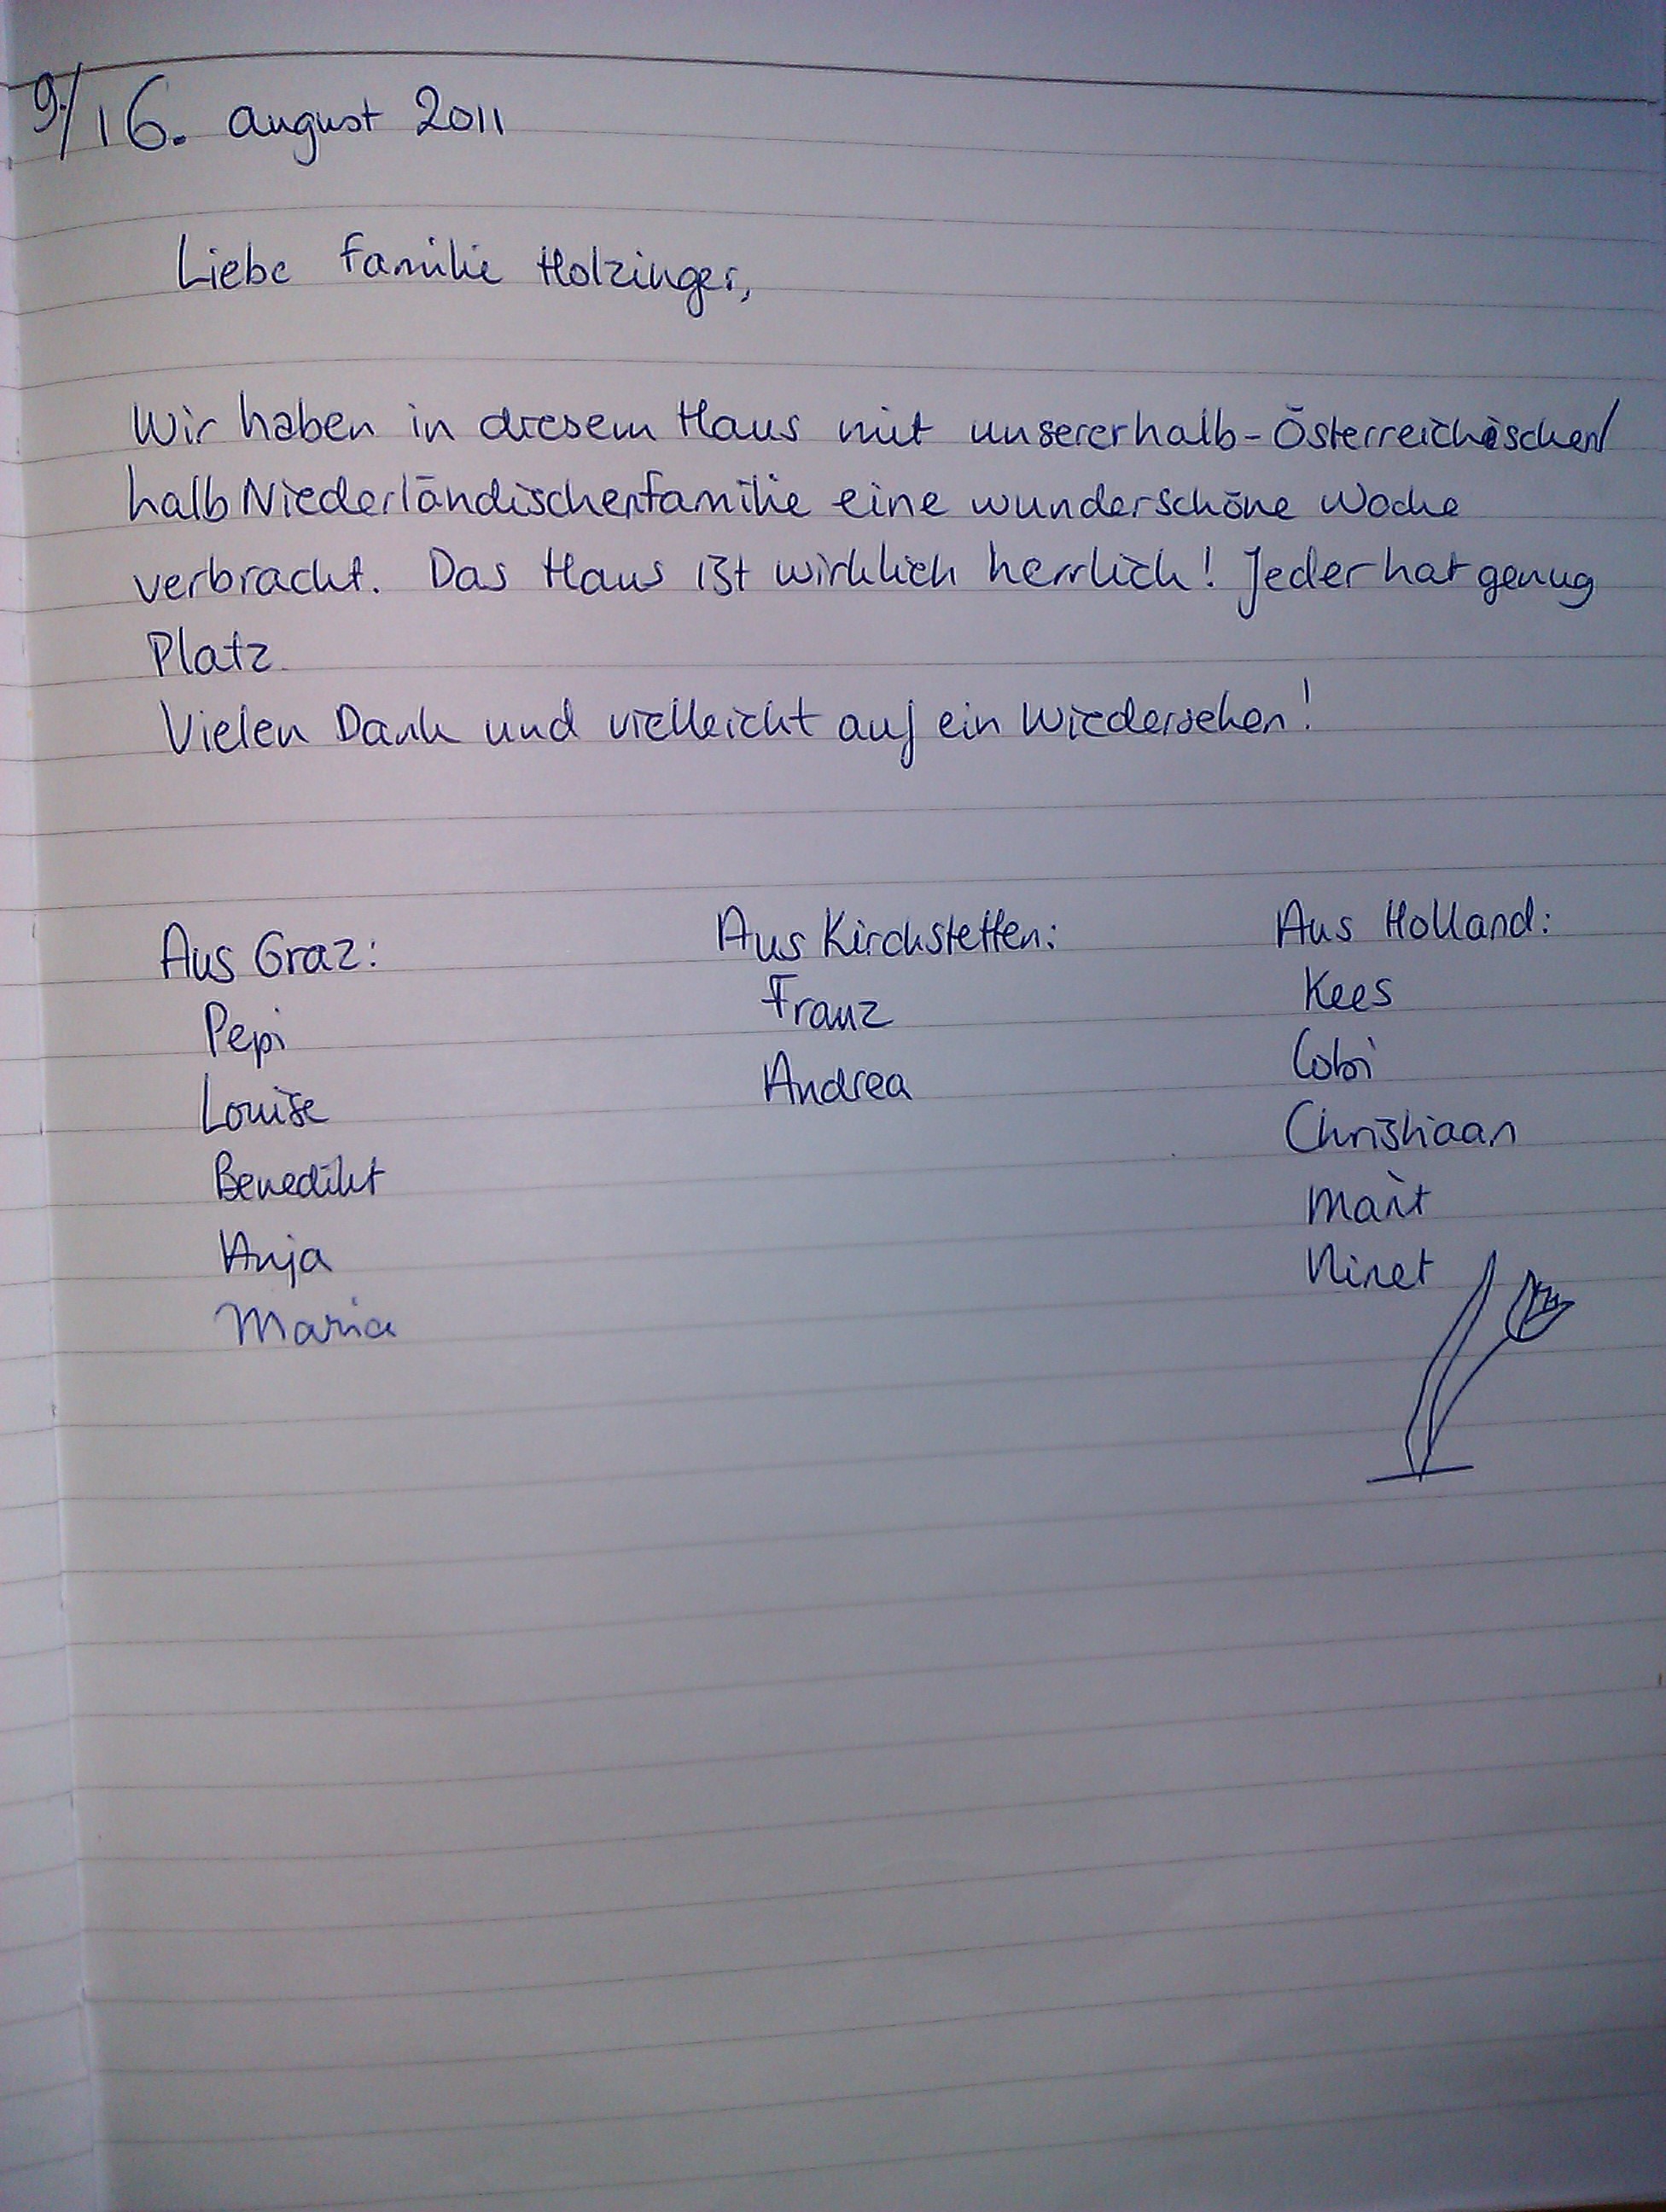 9./16. august 2011
Liebe Familie Holzinger,
Wir haben in diesem Haus mit unsererhalb-Österreichischen/
halb Niederländischenfamilie eine wunderschöne Woche
verbracht. Das Haus ist wirklich herrlich! Jeder hat genug
Platz.
Vielen Dank und vielleicht auf ein Wiedersehen!
Aus Graz:
Pepi
Louise
Benedikt
Anja
Maria
Aus Kirchstetten:
Franz
Andrea
Aus Holland:
Kees
Cobi
Christiaan
Marit
Ninet